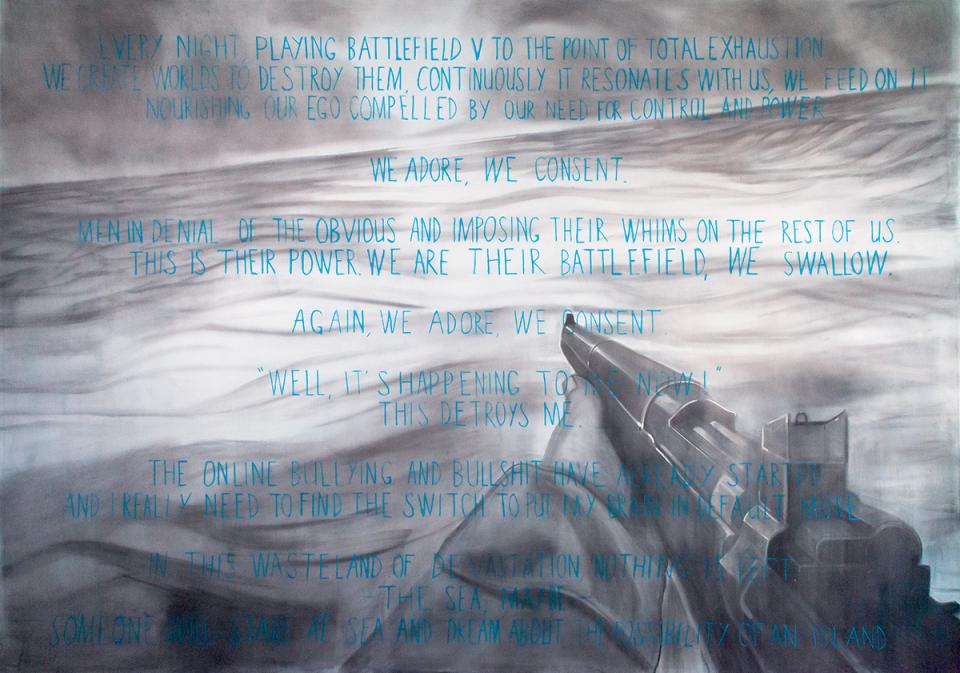 EVERY NIGHT, PLAYING BATTLEFIELD V TO THE POINT OF TOTAL EXHAUSTION
WE CREATE WORLDS TO DESTROY THEM, CONTINUOUSLY IT RESONATES WITH US, WE FEED ON IT
NOURISHING OUR EGO COMPELLED BY OUR NEED FOR CONTROL AND POWER
WE ADORE, WE CONSENT.
MEN IN DENIAL OF THE OBVIOUS AND IMPOSING THEIR WHIMS ON THE REST OF US.
THIS IS THEIR POWER. WE ARE THEIR BATTLEFIELD, WE SWALLOW.
AGAIN, WE ADORE, WE CONSENT.
"WELL, IT'S HAPPENING TO ME NOW!"
THIS DETROYS ME.
THE ONLINE BULLYING AND BULLSHIT HAVE ALREADY STARTED
AND I REALLY NEED TO FIND THE SWITCH TO PUT MY BRAIN IN DEFAULT MODE.
IN THIS WASTELAND OF DEVASTATION NOTHING IS LEFT.
-THE SEA, MAYBE-
SOMEONE WILL STARE AT SEA AND DREAM ABOUT THE POSSIBILITY OF AN ISLAND.